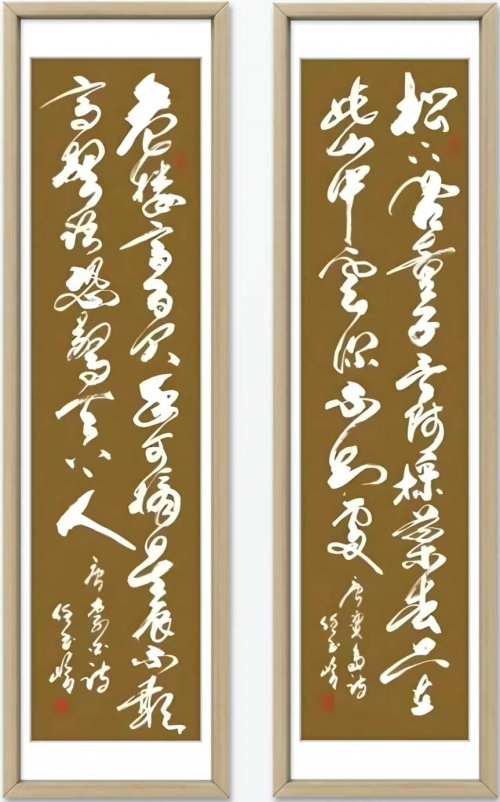 松下問童子言師採藥去只在
此山中雲深不知處
唐賈島詩
任玉嶺
危樓高百尺手可摘星辰不敢
高聲語恐驚天上人
唐李白詩
任玉嶺